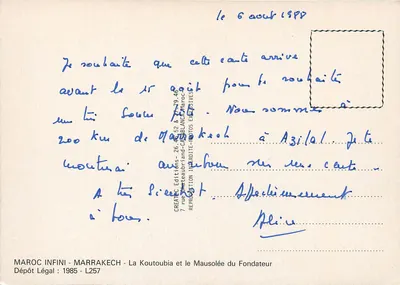 le 6 août 1988
Je souhaite que cette carte arrive
avant le 15 août pour te souhaiter
une très bonne fête. Nous sommes à
200 km de Marrakech à Azilal. Je te
montrerai au retour sur une carte.
A très bientôt. Affectueusement
à tous. Aline
CREATIVE Editions
REPRODUCTION INTERDITE
MAROC INFINI - MARRAKECH - La Koutoubia et le Mausolée du Fondateur
Dépôt Légal : 1985 - L257